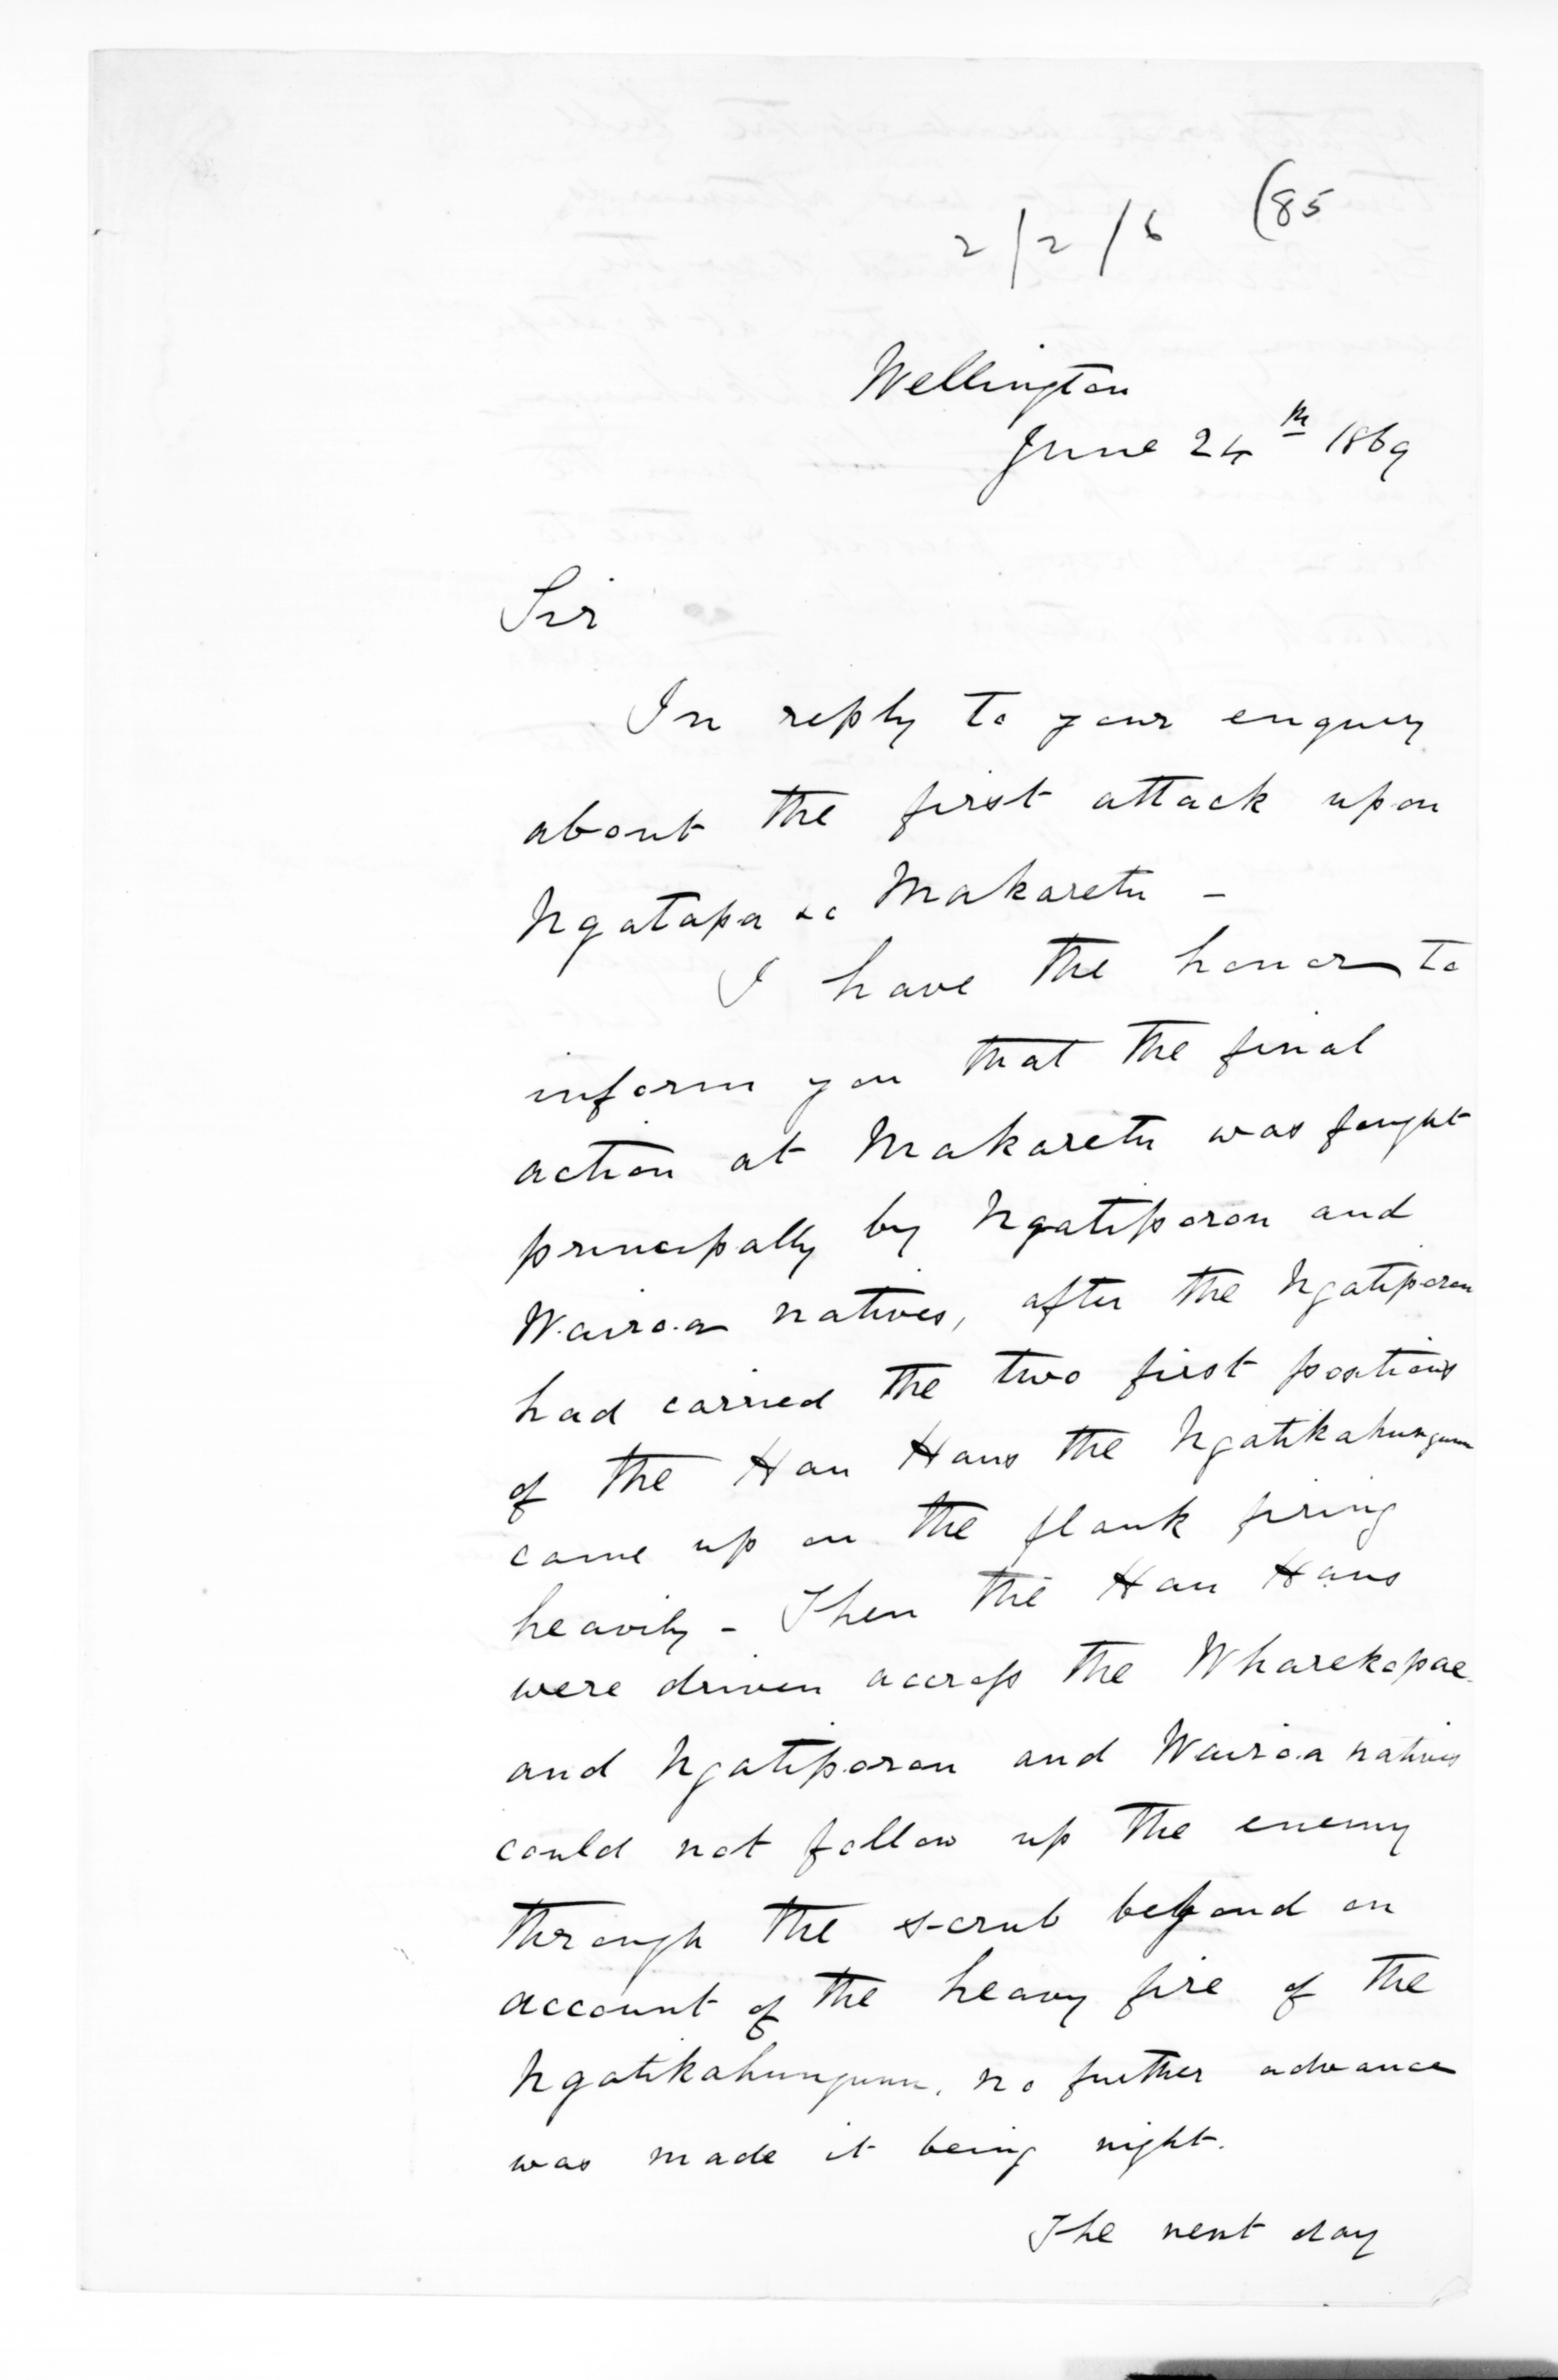 2/2/6 (85
Wellington
June 24th 1869
Sir
In reply to your enquiry
about the first attack upon
Ngatapa &c Makaretu -
I have the honor to
inform you that the final
action at Makaretu was fought
principally by Ngatiporou and
Wairoa natives, after the Ngatiporou
had carried the two first positions
of the Hau Haus the Ngatikahungunu
came up on the flank firing
heavily - Then the Hau Haus
were driven accross the Wharekopae
and Ngatiporou and Wairoa natives
could not follow up the enemy
through the scrub beyond on
account of the heavy fire of the
Ngatikahungunu, no further advance
was made it being night.
The next day